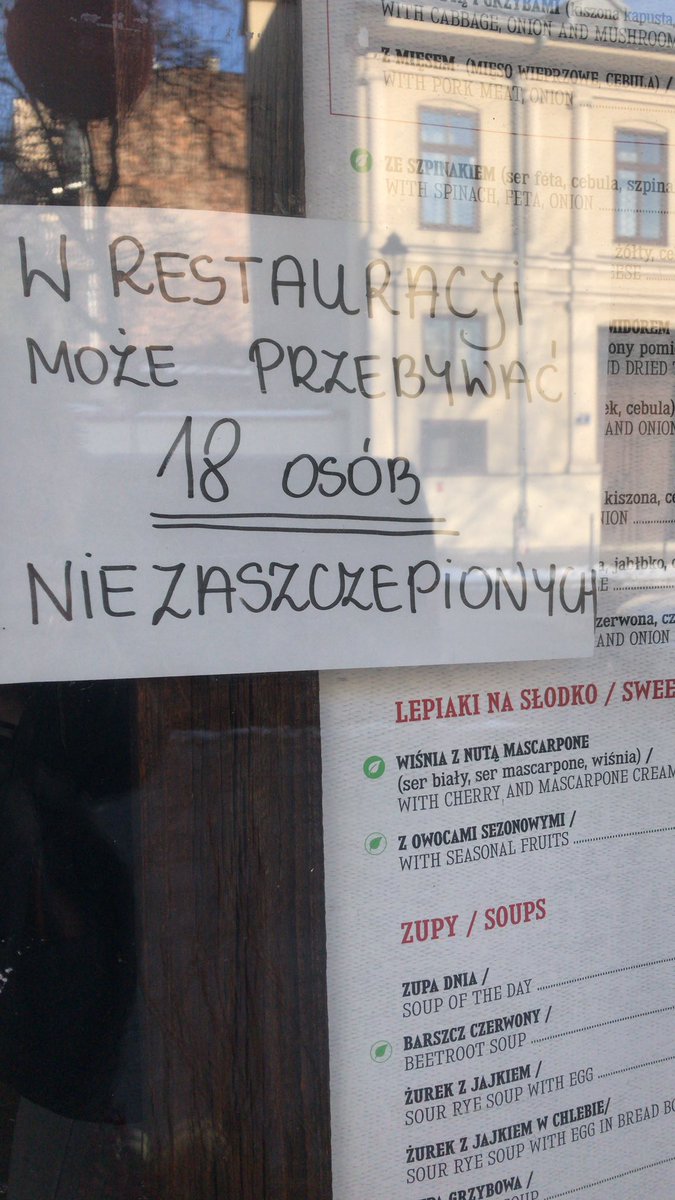 W RESTAURACJI
MOŻE PRZEBYWAĆ
18 OSÓB
NIEZASZCZEPIONYCH
GRZYBAMI (kiszona kapusta,
WITH CABBAGE, ONION AND MUSHROOM
Z MIĘSEM (MIĘSO WIEPRZOWE, CEBULA) /
WITH PORK MEAT, ONION
ZE SZPINAKIEM (ser feta, cebula, szpina
WITH SPINACH, FETA, ONION
żółty, ce
ESE
MIDOREM
ony pomi
D DRIED
ek, cebula)
AND ONION
kiszona, ce
NION
a, jabłko, c
E
zerwona, cz
AND ONION
LEPIAKI NA SŁODKO / SWEE
WIŚNIA Z NUTĄ MASCARPONE
(ser biały, ser mascarpone, wiśnia) /
WITH CHERRY AND MASCARPONE CREAM
Z OWOCAMI SEZONOWYMI /
WITH SEASONAL FRUITS
ZUPY / SOUPS
ZUPA DNIA /
SOUP OF THE DAY
BARSZCZ CZERWONY /
BEETROOT SOUP
ŻUREK Z JAJKIEM /
SOUR RYE SOUP WITH EGG
ŻUREK Z JAJKIEM W CHLEBIE/
SOUR RYE SOUP WITH EGG IN BREAD BO
GRZYBOWA /
SOUP